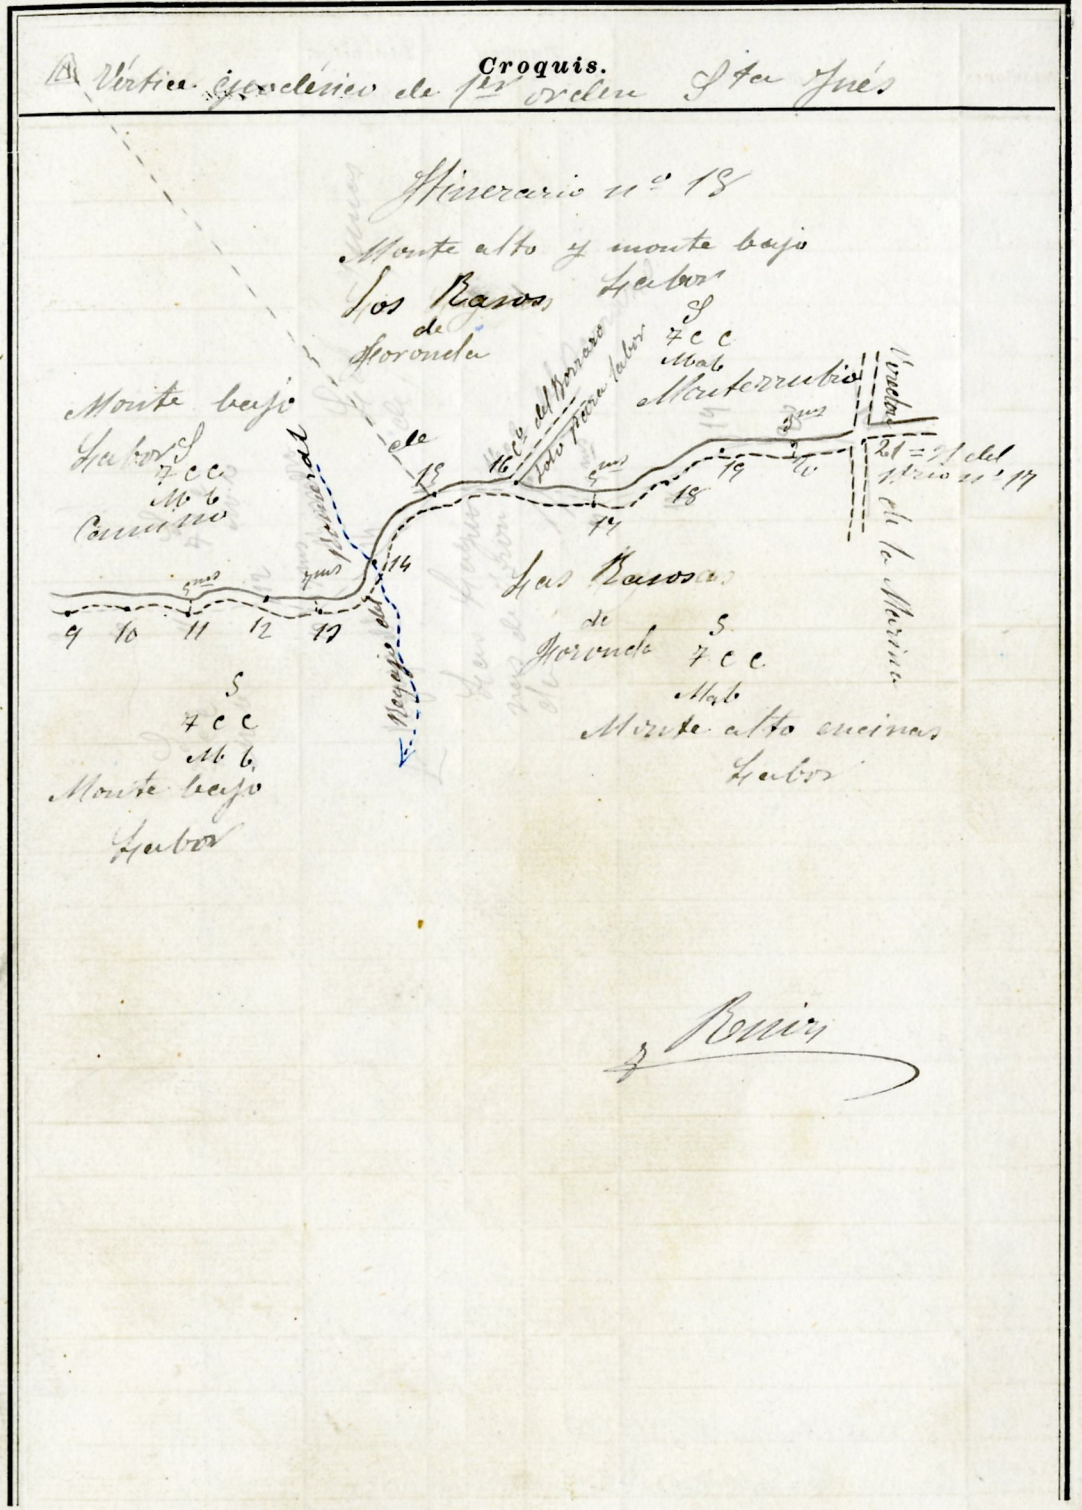 Croquis.
Vértice geodésico de 1er orden Sta Inés
Itinerario nº 18
Monte alto y monte bajo
Los Rasos Labor
de
Foronda
S
7 c c
Ma b
Monterrubio
Monte bajo
Labor S
7 c c
M b
Camino
de
Cº del Borraro
solo para labor
Vereda
de la Marina
21 = 21 del
Itrio nº 17
3 ms
5 ms
7 ms
3 ms
9 10 11 12 13 14 15 16 17 18 19 20
Regajo del
Romeral
Las Rasos
de
Foronda
S
7 c c
Ma b
Monte alto encinas
Labor
S
7 c c
M b
Monte bajo
Labor